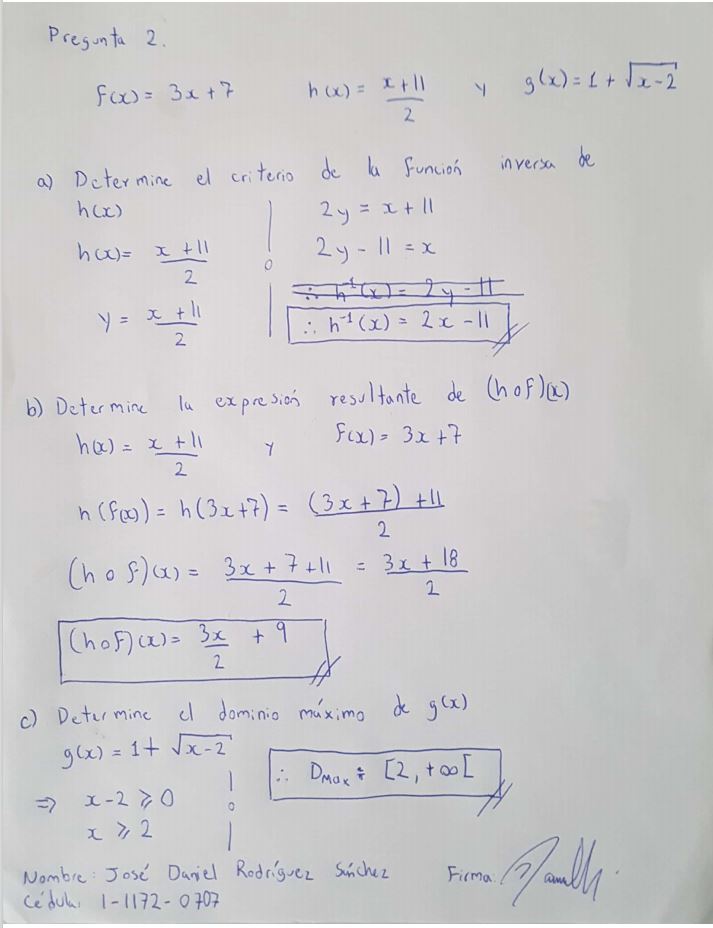 Pregunta 2.
f(x) = 3x + 7 h(x) = (x + 11)/2 y g(x) = 1 + √(x-2)
a) Determine el criterio de la función inversa de
h(x)
h(x) = (x + 11)/2
y = (x + 11)/2
2y = x + 11
2y - 11 = x
∴ h⁻¹(x) = 2y - 11
∴ h⁻¹(x) = 2x - 11
b) Determine la expresión resultante de (h o f)(x)
h(x) = (x + 11)/2 y f(x) = 3x + 7
h(f(x)) = h(3x+7) = ((3x + 7) + 11)/2
(h o f)(x) = (3x + 7 + 11)/2 = (3x + 18)/2
(h o f)(x) = 3x/2 + 9
c) Determine el dominio máximo de g(x)
g(x) = 1 + √(x-2)
⇒ x - 2 ⩾ 0
x ⩾ 2
∴ DMax : [2, +∞[
Nombre: José Daniel Rodríguez Sánchez Firma:
Cédula: 1-1172-0707